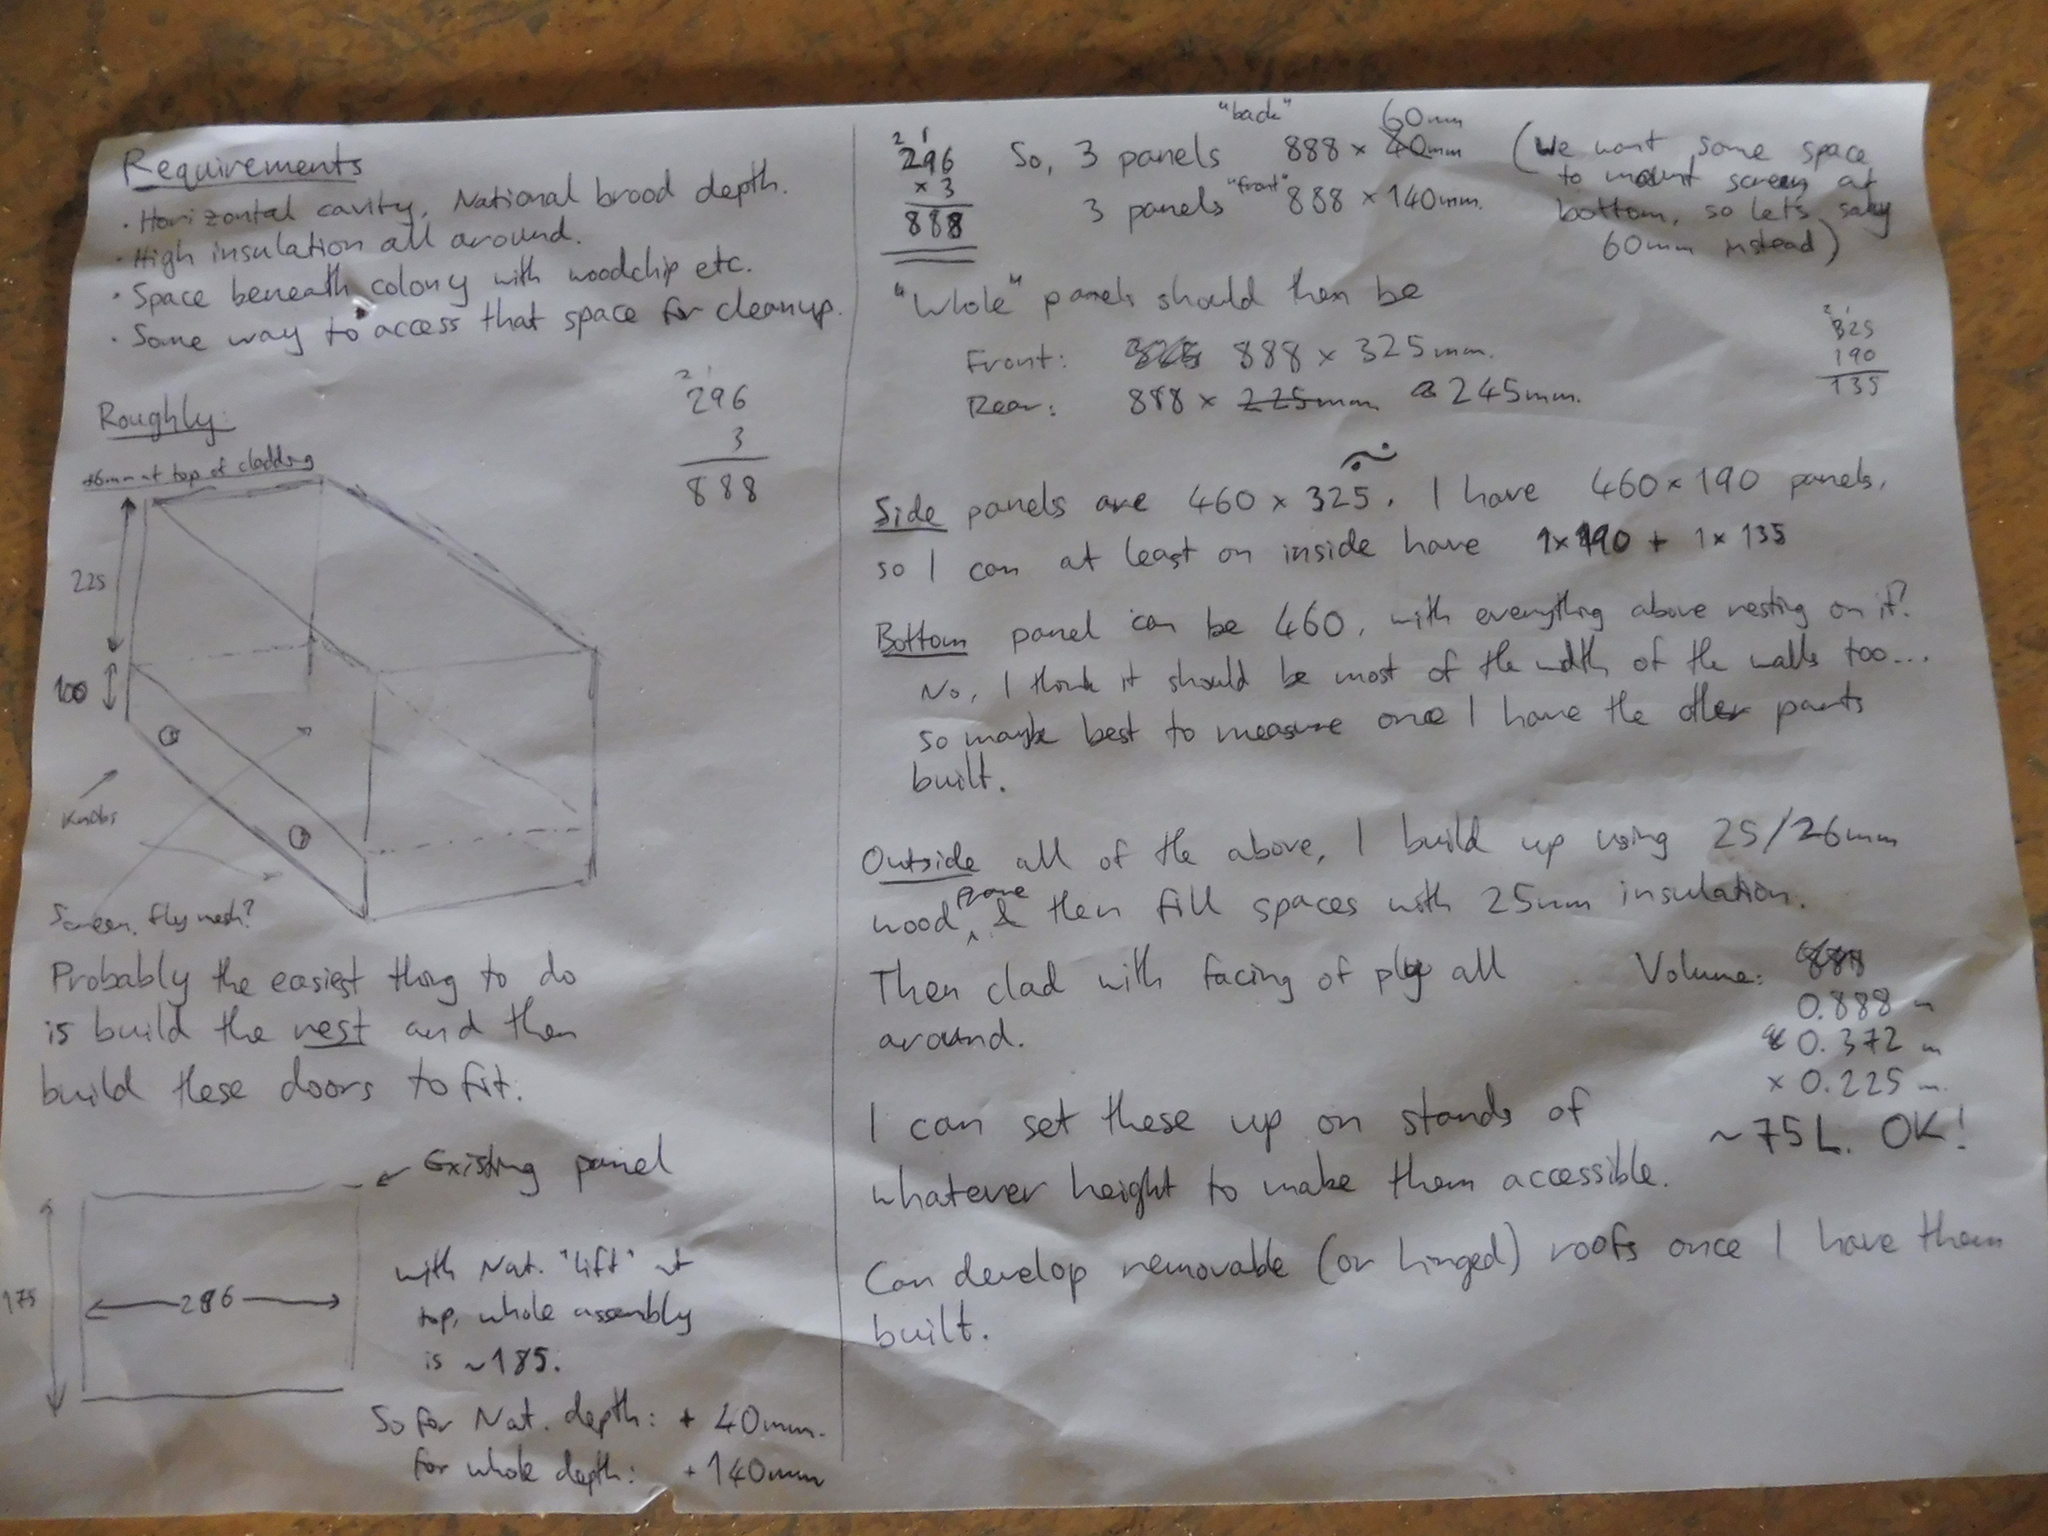 Requirements
· Horizontal cavity, National brood depth.
· High insulation all around.
· Space beneath colony with woodchip etc.
· Some way to access that space for cleanup.
2 1
296
3
888
Roughly:
at top of cladding
225
100
Knobs
Screen, fly mesh?
Probably the easiest thing to do
is build the nest and then
build these doors to fit.
← Existing panel
175
296
with Nat. "lift" at
top, whole assembly
is ~185.
So for Nat. depth: + 40mm.
for whole depth: + 140mm
2 1
296
× 3
888
So, 3 panels "back" 888 × 40mm 60mm
3 panels "front" 888 × 140mm.
(We want some space
to mount screen at
bottom, so lets say
60mm instead)
"Whole" panels should then be
Front: 888 × 325mm.
Rear: 888 × 225mm 245mm.
2 1
325
190
135
Side panels are 460 × 325. I have 460 × 190 panels,
so I can at least on inside have 1×190 + 1×135
Bottom panel can be 460, with everything above resting on it?
No, I think it should be most of the width of the walls too...
so maybe best to measure once I have the other parts
built.
Outside all of the above, I build up using 25/26mm
wood frame & then fill spaces with 25mm insulation.
Then clad with facing of ply all
around.
Volume: 888
0.888 m
0.372 m
× 0.225 m.
~75L. OK!
I can set these up on stands of
whatever height to make them accessible.
Can develop removable (or hinged) roofs once I have them
built.